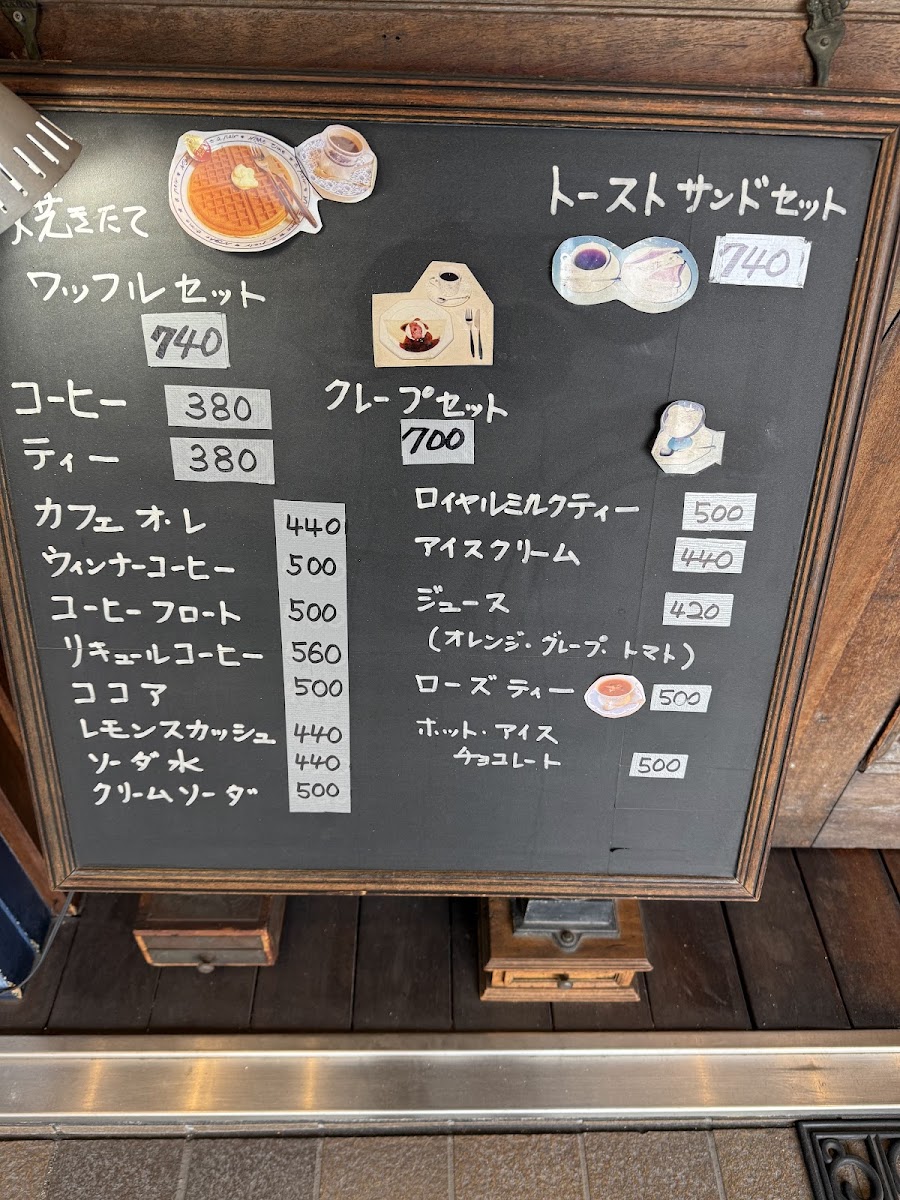 焼きたて
ワッフルセット
740
トーストサンドセット
740
クレープセット
700
コーヒー 380
ティー 380
カフェオ・レ 440
ウィンナーコーヒー 500
コーヒーフロート 500
リキュールコーヒー 560
ココア 500
レモンスカッシュ 440
ソーダ水 440
クリームソーダ 500
ロイヤルミルクティー 500
アイスクリーム 440
ジュース 420
(オレンジ・グレープ・トマト)
ローズティー 500
ホット・アイス
チョコレート 500